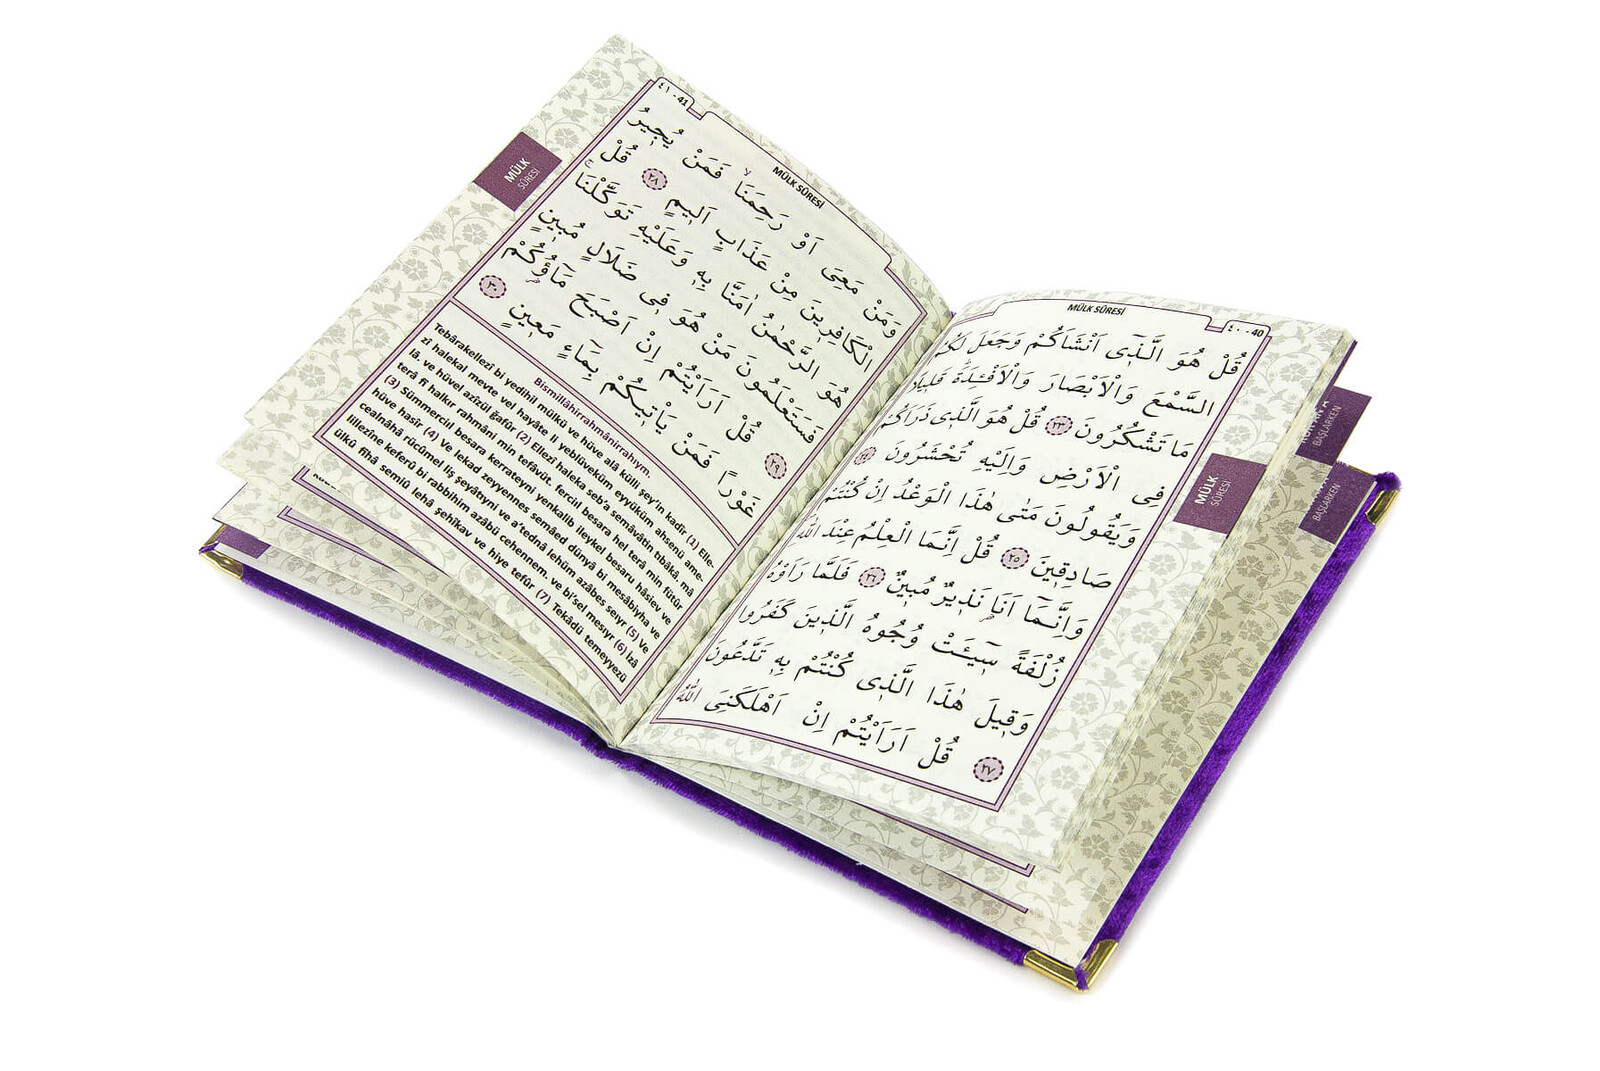 MÜLK SÛRESİ
٤٠ - 40
قُلْ هُوَ الَّذ۪ٓي اَنْشَاَكُمْ وَجَعَلَ لَكُمُ
السَّمْعَ وَالْاَبْصَارَ وَالْاَفْـِٔدَةَۜ قَل۪يلًا
مَا تَشْكُرُونَ ﴿٢٣﴾ قُلْ هُوَ الَّذ۪ي ذَرَاَكُمْ
فِي الْاَرْضِ وَاِلَيْهِ تُحْشَرُونَ ﴿٢٤﴾
وَيَقُولُونَ مَتٰى هٰذَا الْوَعْدُ اِنْ كُنْتُمْ
صَادِق۪ينَ ﴿٢٥﴾ قُلْ اِنَّمَا الْعِلْمُ عِنْدَ اللّٰهِ
وَاِنَّمَٓا اَنَا۬ نَذ۪يرٌ مُب۪ينٌ ﴿٢٦﴾ فَلَمَّا رَاَوْهُ
زُلْفَةً س۪ٓيـَٔتْ وُجُوهُ الَّذ۪ينَ كَفَرُوا
وَق۪يلَ هٰذَا الَّذ۪ي كُنْتُمْ بِه۪ تَدَّعُونَ
﴿٢٧﴾ قُلْ اَرَاَيْتُمْ اِنْ اَهْلَكَنِيَ اللّٰهُ
MÜLK
SÛRESİ
٤١ - 41
MÜLK SÛRESİ
وَمَنْ مَعِيَ اَوْ رَحِمَنَاۙ فَمَنْ يُج۪يرُ
الْكَافِر۪ينَ مِنْ عَذَابٍ اَل۪يمٍ ﴿٢٨﴾ قُلْ
هُوَ الرَّحْمٰنُ اٰمَنَّا بِه۪ وَعَلَيْهِ تَوَكَّلْنَاۚ
فَسَتَعْلَمُونَ مَنْ هُوَ ف۪ي ضَلَالٍ مُب۪ينٍ
﴿٢٩﴾ قُلْ اَرَاَيْتُمْ اِنْ اَصْبَحَ مَٓاؤُ۬كُمْ
غَوْرًا فَمَنْ يَأْت۪يكُمْ بِمَٓاءٍ مَع۪ينٍ ﴿٣٠﴾
MÜLK
SÛRESİ
Bismillâhirrahmânirrahıym.
Tebârakellezî bi yedihil mülkü ve hüve alâ külli şey'in kadîr (1) Elle-
zî halekal mevte vel hayâte li yeblüveküm eyyüküm ahsenü ame-
lâ. ve hüvel azîzül ğafûr (2) Ellezî haleka seb'a semâvâtin tıbâkâ, mâ
terâ fî halkır rahmâni min tefâvüt. fercîıl besara hel terâ min fütûr
(3) Sümmercîıl besara kerrateyni yenkalib ileykel besaru hâsiev ve
hüve hasîr (4) Ve lekad zeyyennes semâed dünyâ bi mesâbiyha ve
cealnâhâ rücûmel liş şeyâtıyni ve a'tednâ lehüm azâbes seıyr (5) Ve
lillezîne keferû bi rabbihim azâbü cehennem. ve bi'sel mesıyr (6) İzâ
ülkû fîhâ semiû lehâ şehîkav ve hiye tefûr (7) Tekâdü temeyyezü
BAŞLARKEN
BAŞLARKEN